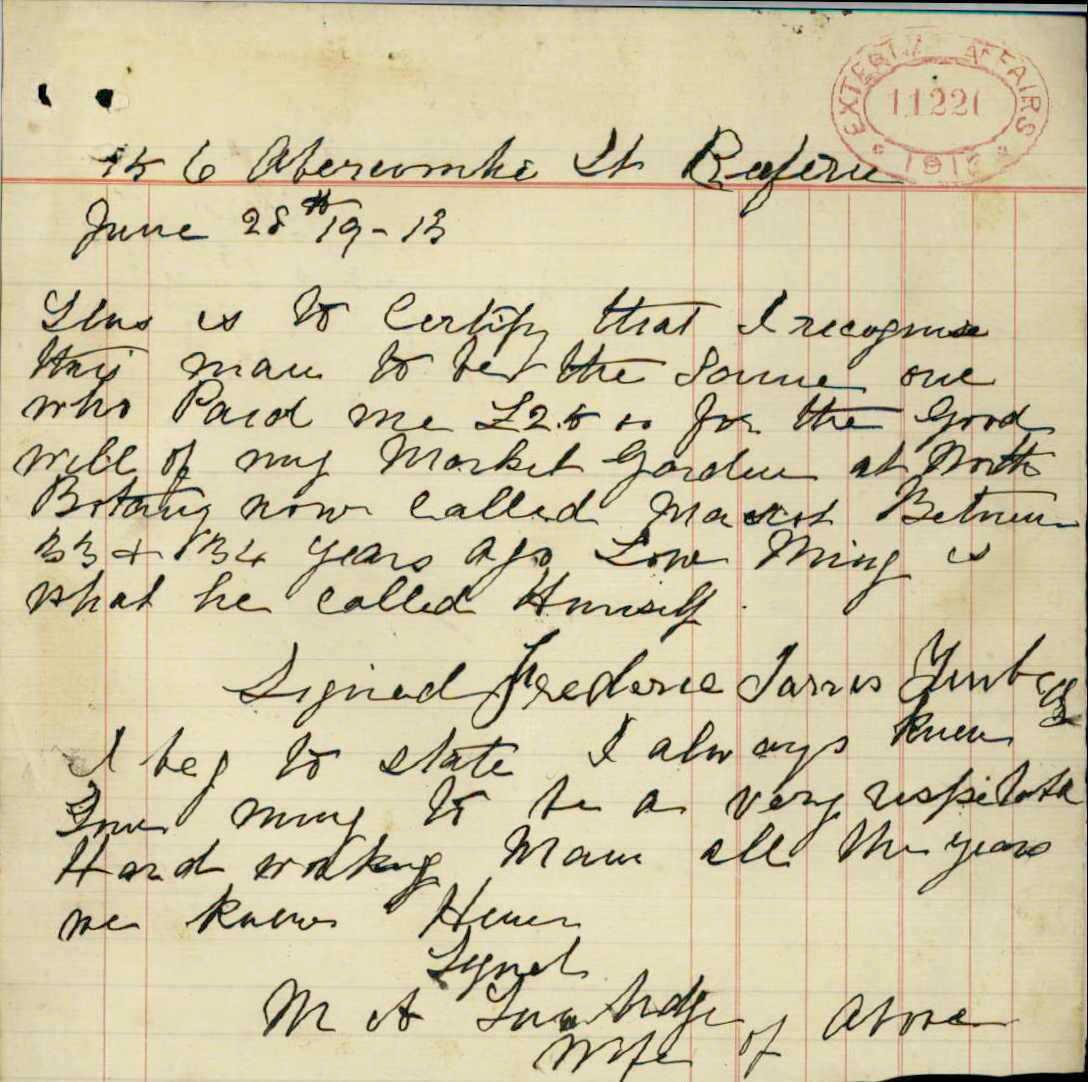 EXTERNAL AFFAIRS
1122
191
Abercombie St Redfern
June 28th 19-13
This is to Certify that I recognise
this man to be the Same one
who Paid me for the Good
will of my Market Garden at North
Botany now Called Mascot Between
33 + 34 years ago Low Ming is
what he called Himself.
Signed Frederic Jarvis
I beg to state I always knew
Low Ming to be a very respectable
Hard working Man all the years
we knew Him
Signed
M A
Wife of Above